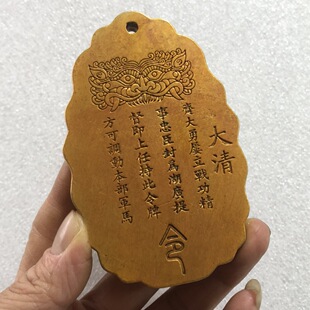 大清
齊大勇屡立戰功精
事忠臣封爲湖廣提
督即上任持此令牌
方可調動本部軍馬
令